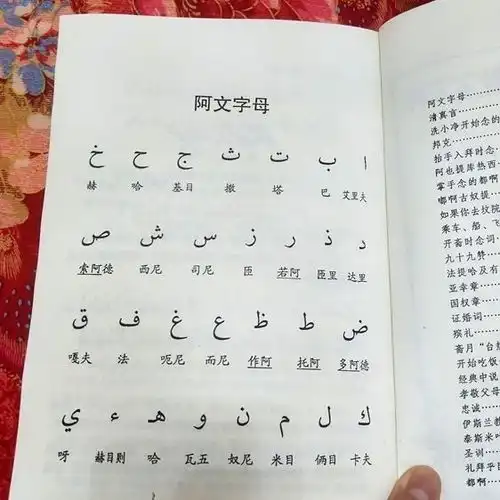 阿文字母
ا ب ت ث ج ح خ
艾里夫 巴 塔 撒 基目 哈 赫
د ذ ر ز س ش ص
达里 臣里 若阿 臣 司尼 西尼 索阿德
ض ط ظ ع غ ف ق
多阿德 托阿 作阿 而尼 呃尼 法 嘎夫
ك ل م ن و هـ ء ي
卡夫 俩目 米目 奴尼 瓦五 哈 赫目则 呀
阿文字母
清真言
洗小净开始念的
邦克
抬手入拜时念
阿也提库热西
掌手念的都啊
嘟啊古奴提
如果你去坟院
乘车、船、飞
开斋时念词
九十九赞
法提哈及有
亚幸章
国权章
证婚词
殡礼
斋月“台
开始吃饭
经典中说
孝敬父母
忠诚
伊斯兰教
泰斯米
圣训
礼拜乎目
都啊